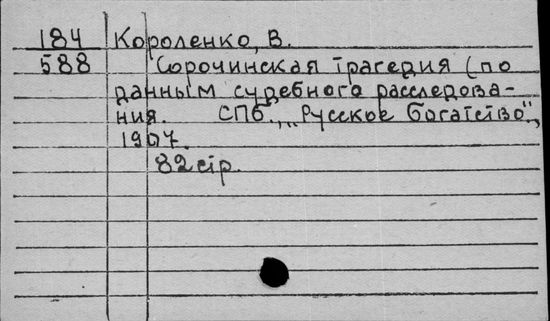 184 Короленко, В.
588 Сорочинская трагедия (по
данным судебного расследова-
ния. СПб., „Русское богатство",
1907.
82 стр.